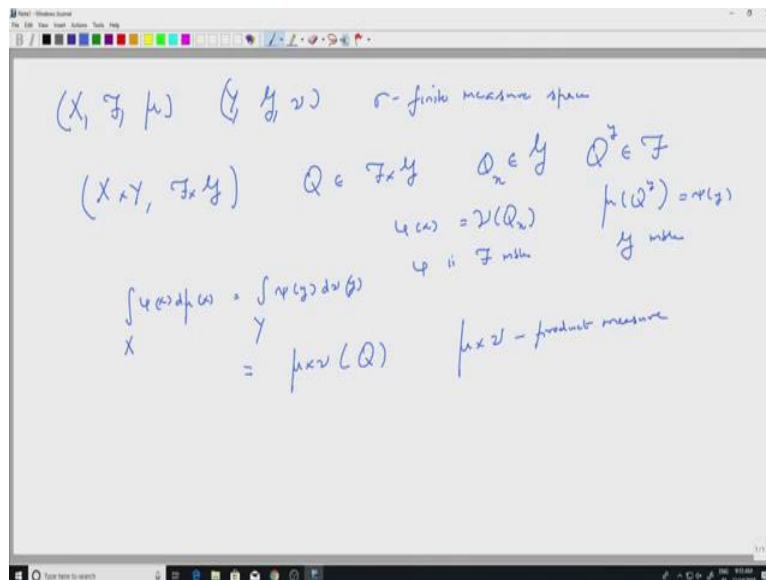 Note1 - Windows Journal
File Edit View Insert Actions Tools Help
(X, ℱ, μ) (Y, 𝒢, ν) σ-finite measure spaces
(X×Y, ℱ×𝒢) Q ∈ ℱ×𝒢 Q_x ∈ 𝒢 Q^y ∈ ℱ
φ(x) = ν(Q_x) μ(Q^y) = ψ(y)
φ is ℱ mble 𝒢 mble
∫_X φ(x)dμ(x) = ∫_Y ψ(y)dν(y)
= μ×ν(Q) μ×ν - product measure
1/1
Type here to search
ENG